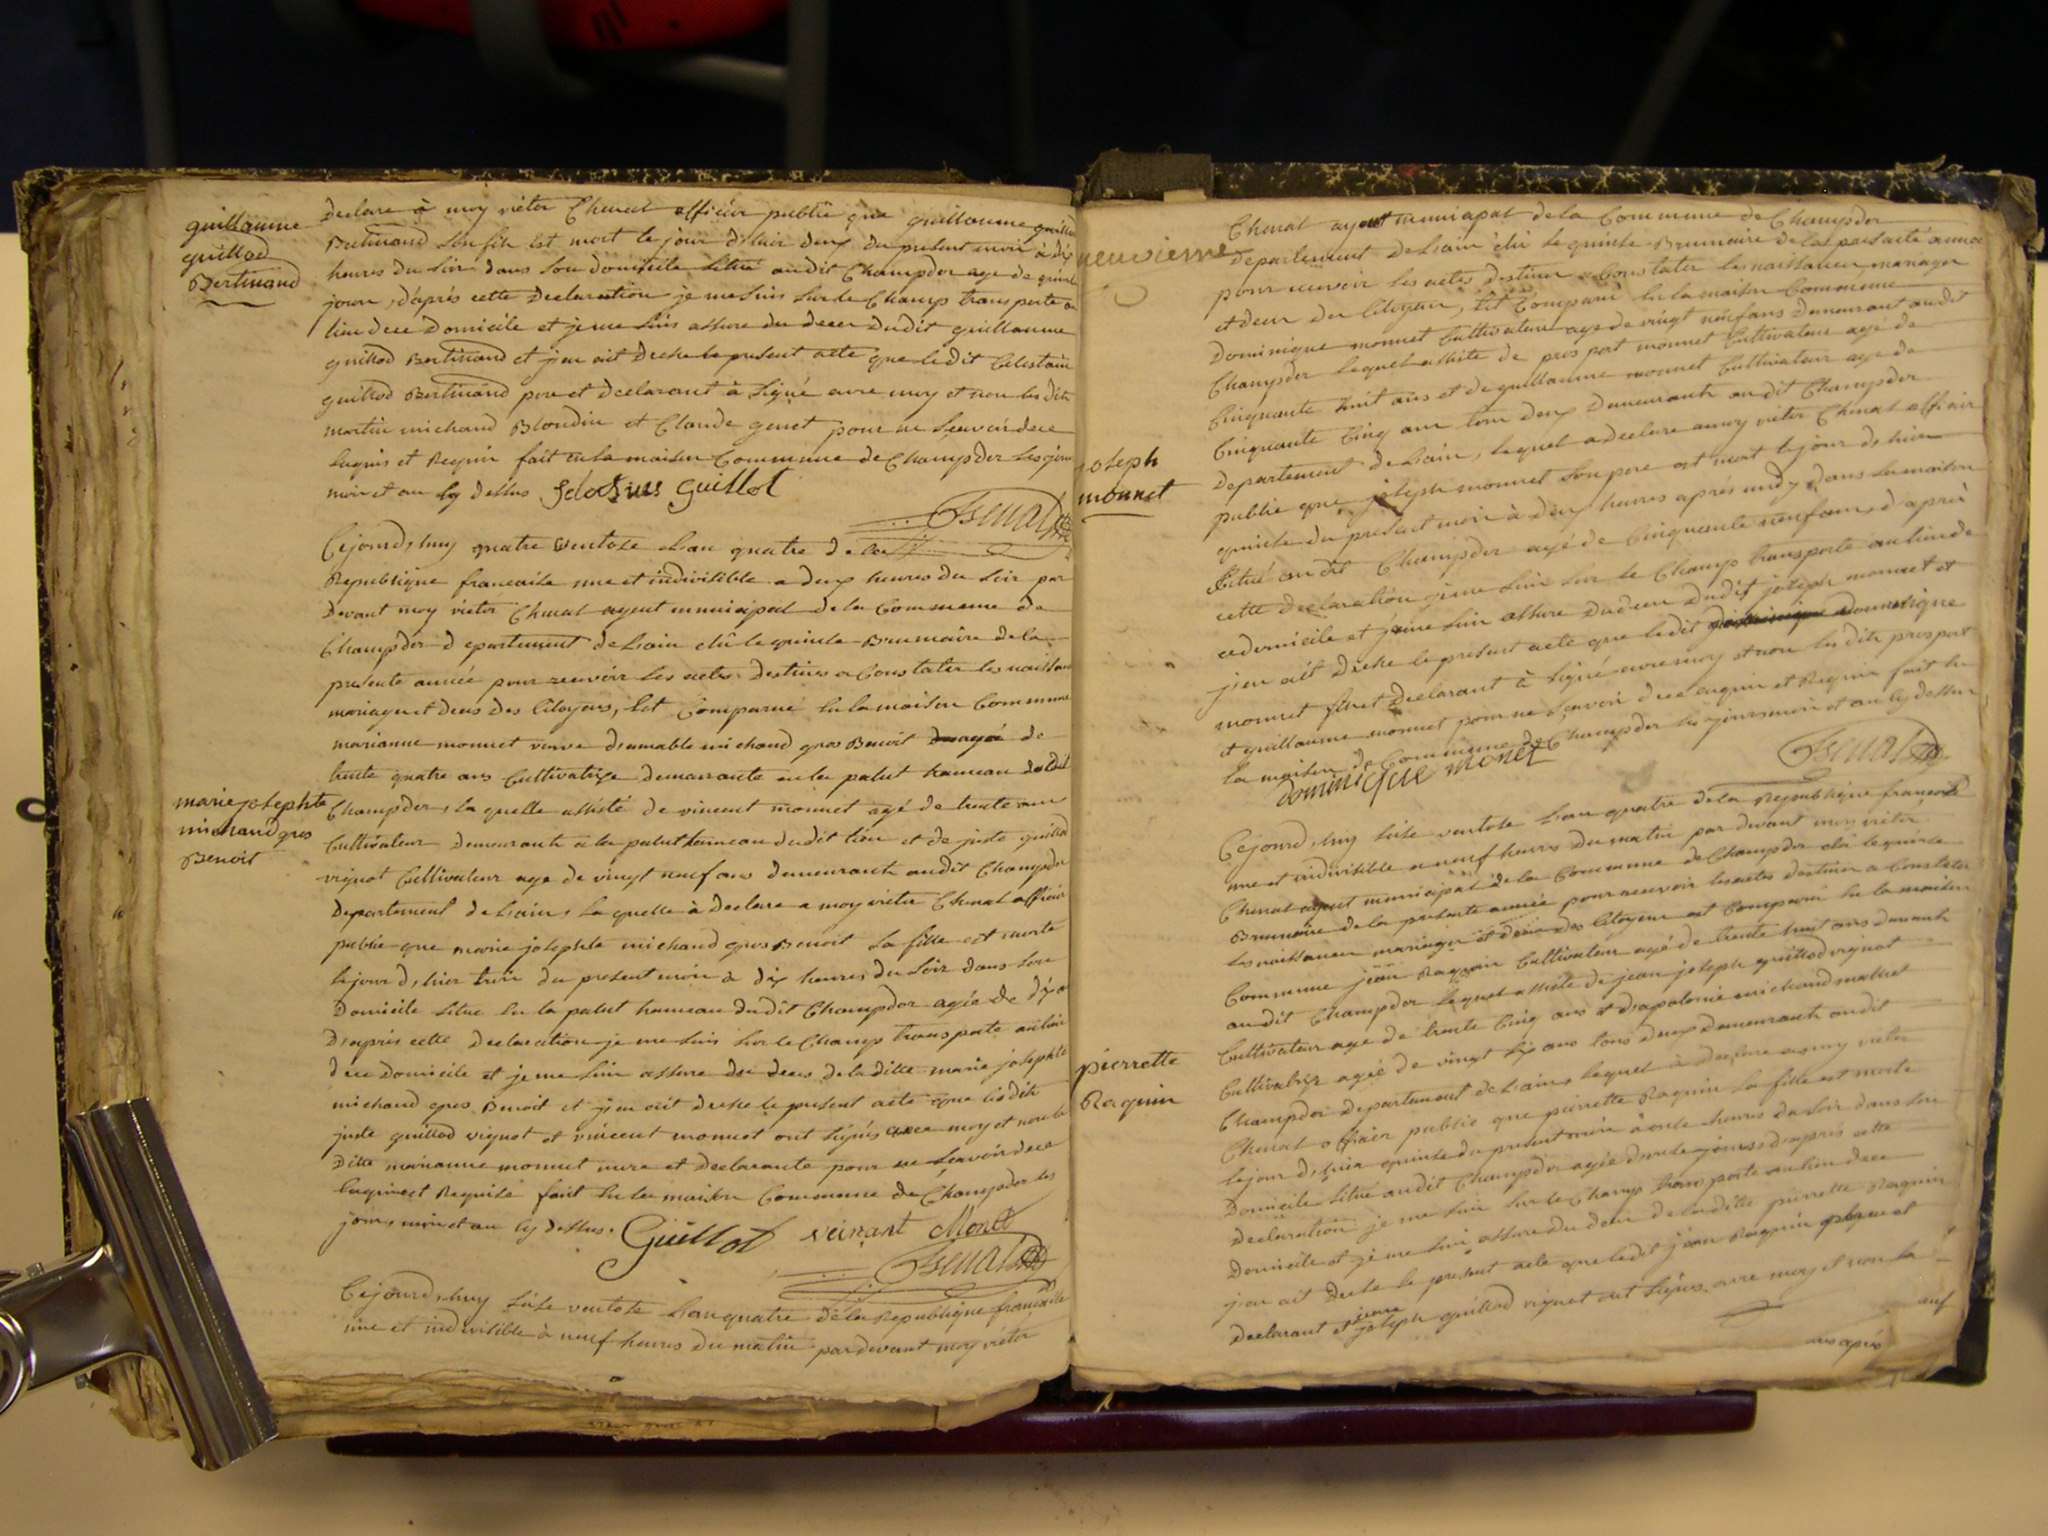 guillaume
guillod
Bertinand
Declare à moy victor Chenat officier public que guillaume guillod
Bertinand son fils est mort le jour d'hier deux du present mois à dix
heures du soir dans son domicile situé audit Champdor age de
jours, d'aprés cette Declaration je me suis sur le Champ transporte au
lieu de ce Domicile et je me suis assure du deces dudit guillaume
guillod Bertinand et j'en ait dresse le present acte que ledit Celestain
guillod Bertinand pere et declarant à signé avec moy et non les dits
martin michaud Blondin et Claude genet pour ne sçavoir de ce
Enquis et Requis fait en la maison Commune de Champdor les jour
mois et an cy dessus guillot
Chenat
Cejourd'huy quatre ventose Lan quatre de la
Republique francaise une et indivisible a deux heures du soir par
devant moy victor Chenat agent municipal de la Commune de
Champdor departement de Lain élû le quinze Brumaire de la
presente année pour recevoir les actes destines a Constater les naissan
mariage et deces des Citoyens, Est Comparue En la maison Commune
marianne monnet veuve d'aimable michaud gros Benoit agée de
trente quatre ans Cultivatrice demeurante en la palut hameau dudit
marie josephte
michaud gros
Benoit
Champdor, la quelle assisté de vincent monnet agé de trente ans
Cultivateur demeurants a la palut hameau dudit lieu et de juste guillod
vignot Cultivateur age de vingt neuf ans demeurants audit Champdor
Departement de Lain, la quelle à declare a moy victor Chenat officier
public que marie josephte michaud gros Benoit sa fille est morte
le jour d'hier trois du present mois à dix heures du soir dans son
Domicile situe En la palut hameau dudit Champdor agée de dix
D'aprés cette declaration je me suis sur le Champ transporte au lieu
de ce Domicile et je me suis assure du deces de la ditte marie josephte
michaud gros Benoit et j'en ait dresse le present acte que lesdits
juste guillod vignot et vincent monnet ont signés avec moy et non la
ditte marianne monnet mere et declarante pour ne sçavoir de ce
Enquise et Requise fait En la maison Commune de Champdor les
jour, mois et an cy dessus. Guillot veinsant Monet
Chenat
Cejourd'huy seise ventose Lan quatre de la Republique francaise
une et indivisible à neuf heures du matin par devant moy victor
neuvieme
Chenat agent municipal de la Commune de Champdor
departement de Lain élû le quinze Brumaire de la presente année
pour recevoir les actes destines a Constater les naissances mariages
et deces des Citoyens, Est Comparu En la maison Commune
Dominique monnet Cultivateur age de vingt neuf ans demeurant audit
Champdor lequel assiste de prospert monnet Cultivateur agé de
Cinquante huit ans et de guillaume monnet Cultivateur age de
Cinquante Cinq ans tous deux demeurants audit Champdor
joseph
monnet
departement de Lain, lequel a declare a moy victor Chenat officier
public que joseph monnet son pere est mort le jour d'hier
quinze du present mois à deux heures aprés midy dans sa maison
situé audit Champdor agé de Cinquante neuf ans, d'aprés
cette declaration je me suis sur le Champ transporte au lieu de
ce domicile et je me suis assure du deces dudit joseph monnet et
j'en ait dresse le present acte que ledit Dominique
monnet fils et declarant à signé avec moy et non les dits prospert
et guillaume monnet pour ne sçavoir de ce enquis et Requis fait En
la maison Commune de Champdor les jour mois et an cy dessus
dominique monet
Chenat
Cejourd'huy seise ventose Lan quatre de la Republique francaise
une et indivisible a neuf heures du matin par devant moy victor
Chenat agent municipal de la Commune de Champdor élû le quinze
Brumaire de la presente année pour recevoir les actes destines a Constater
les naissances mariages et deces des Citoyens est Comparu En la maison
Commune jean Raquin Cultivateur agé de trente huit ans demeurants
audit Champdor lequel assiste de jean joseph guillod vignot
Cultivateur age de trente Cinq ans et d'apolonie michaud
Cultivatrice agée de vingt six ans tous deux demeurants audit
pierrette
Raquin
Champdor departement de Lain, lequel à declare a moy victor
Chenat officier public que pierrette Raquin sa fille est morte
le jour d'hier quinze du present mois à onze heures du soir dans son
Domicile situe audit Champdor agée d'onze jours, d'aprés cette
Declaration je me suis sur le Champ transporte au lieu de ce
Domicile et je me suis assure du deces de la ditte pierrette Raquin
j'en ait dresse le present acte que ledit jean Raquin pere et
declarant et jean joseph guillod vignot ont signés avec moy et non la